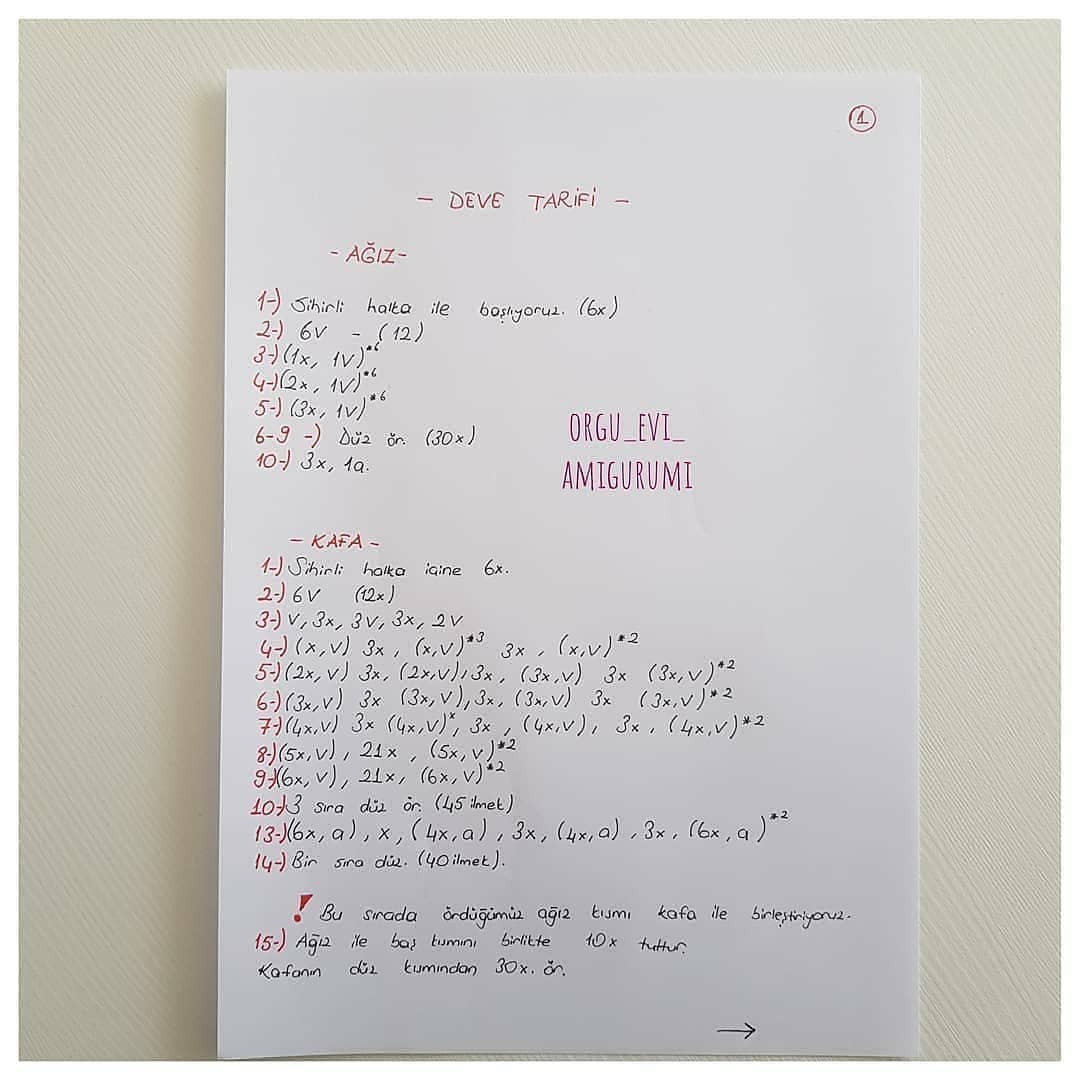 1
- DEVE TARİFİ -
- AĞIZ -
1-) Sihirli halka ile başlıyoruz. (6x)
2-) 6v - (12)
3-) (1x, 1v)*6
4-) (2x, 1v)*6
5-) (3x, 1v)*6
6-9 -) Düz ör. (30x)
10-) 3x, 1a.
ORGU_EVI_
AMIGURUMI
- KAFA -
1-) Sihirli halka içine 6x.
2-) 6v (12x)
3-) v, 3x, 3v, 3x, 2v
4-) (x,v) 3x, (x,v)*3 3x, (x,v)*2
5-) (2x, v) 3x, (2x,v), 3x, (3x,v) 3x (3x,v)*2
6-) (3x,v) 3x (3x,v), 3x, (3x,v) 3x (3x,v)*2
7-) (4x,v) 3x (4x,v)*, 3x, (4x,v), 3x, (4x,v)*2
8-) (5x,v), 21x, (5x,v)*2
9-) (6x,v), 21x, (6x,v)*2
10-) 3 sıra düz ör. (45 ilmet)
13-) (6x,a), x, (4x,a), 3x, (4x,a), 3x, (6x,a)*2
14-) Bir sıra düz. (40 ilmet).
! Bu sırada ördüğümüz ağız kısmı kafa ile birleştiriyoruz.
15-) Ağız ile baş kısmını birlikte 10x tuttur.
Kafanın düz kısmından 30x. ör.
→